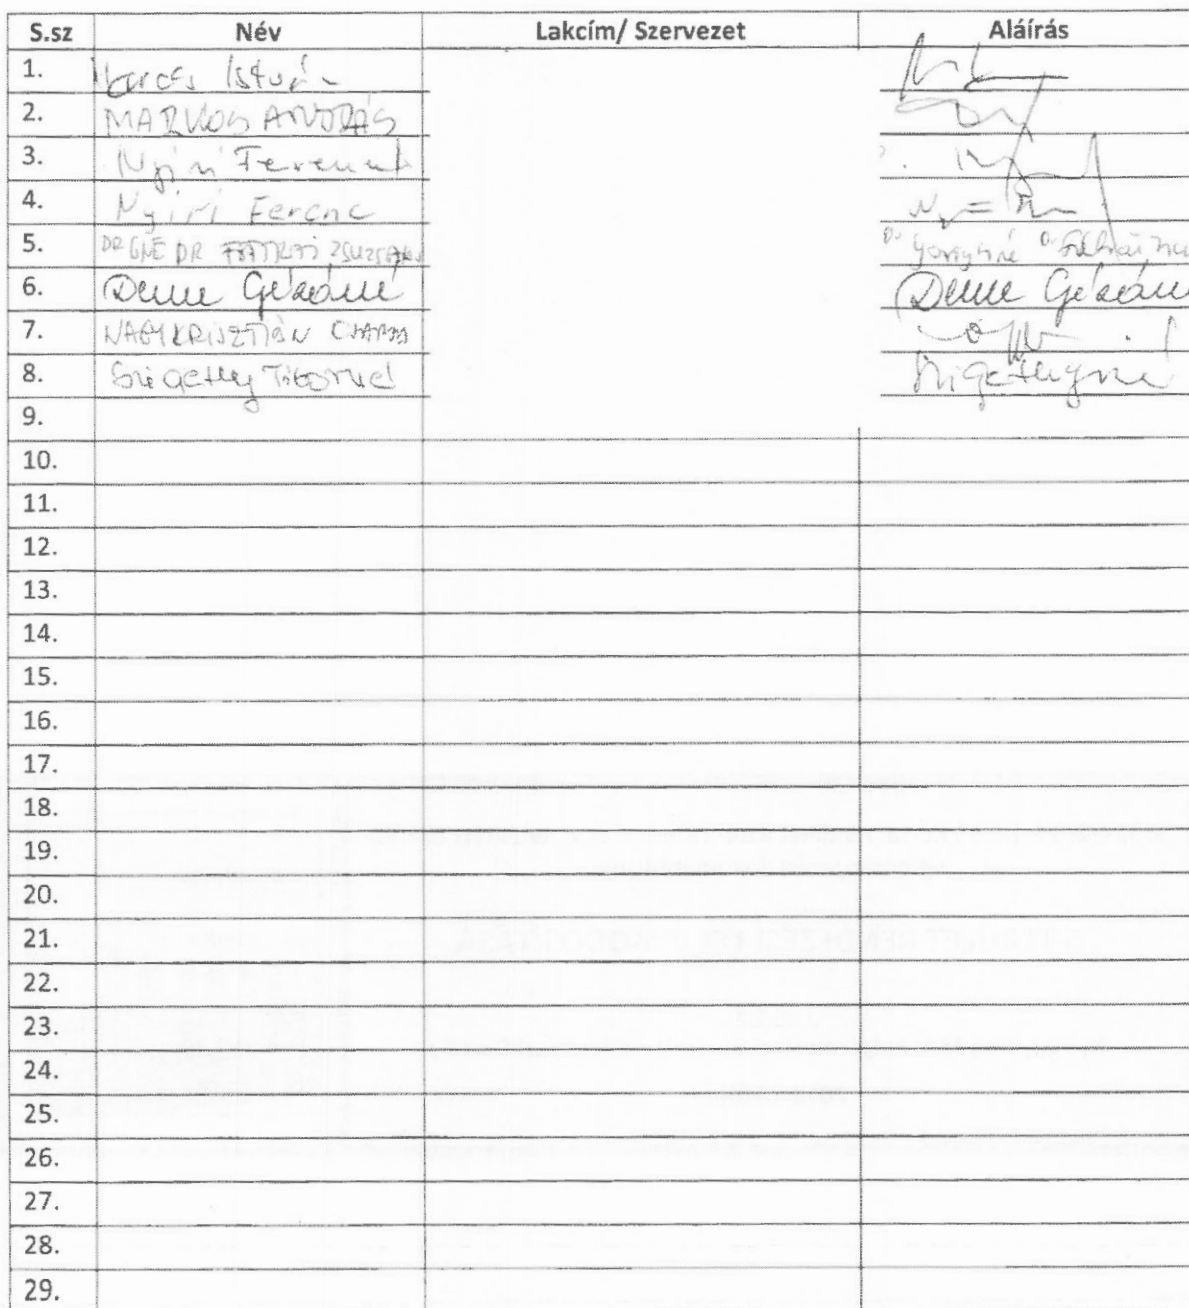 S.sz Név Lakcím/ Szervezet Aláírás
1. István
2. MARKOS ANDRÁS
3. Nyíri Ferencné
4. Nyíri Ferenc
5. DR GNÉ DR
6. Deme Gézáné Deme Gézáné
7. NAGY KRISZTIÁN CSABA
8. Szigethy Tiborné Szigethyné
9.
10.
11.
12.
13.
14.
15.
16.
17.
18.
19.
20.
21.
22.
23.
24.
25.
26.
27.
28.
29.